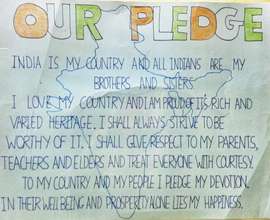 OUR PLEDGE
INDIA IS MY COUNTRY AND ALL INDIANS ARE MY
BROTHERS AND SISTERS
I LOVE MY COUNTRY AND I AM PROUD OF ITS RICH AND
VARIED HERITAGE. I SHALL ALWAYS STRIVE TO BE
WORTHY OF IT. I SHALL GIVE RESPECT TO MY PARENTS,
TEACHERS AND ELDERS AND TREAT EVERYONE WITH COURTESY.
TO MY COUNTRY AND MY PEOPLE I PLEDGE MY DEVOTION.
IN THEIR WELL BEING AND PROSPERITY ALONE LIES MY HAPPINESS.